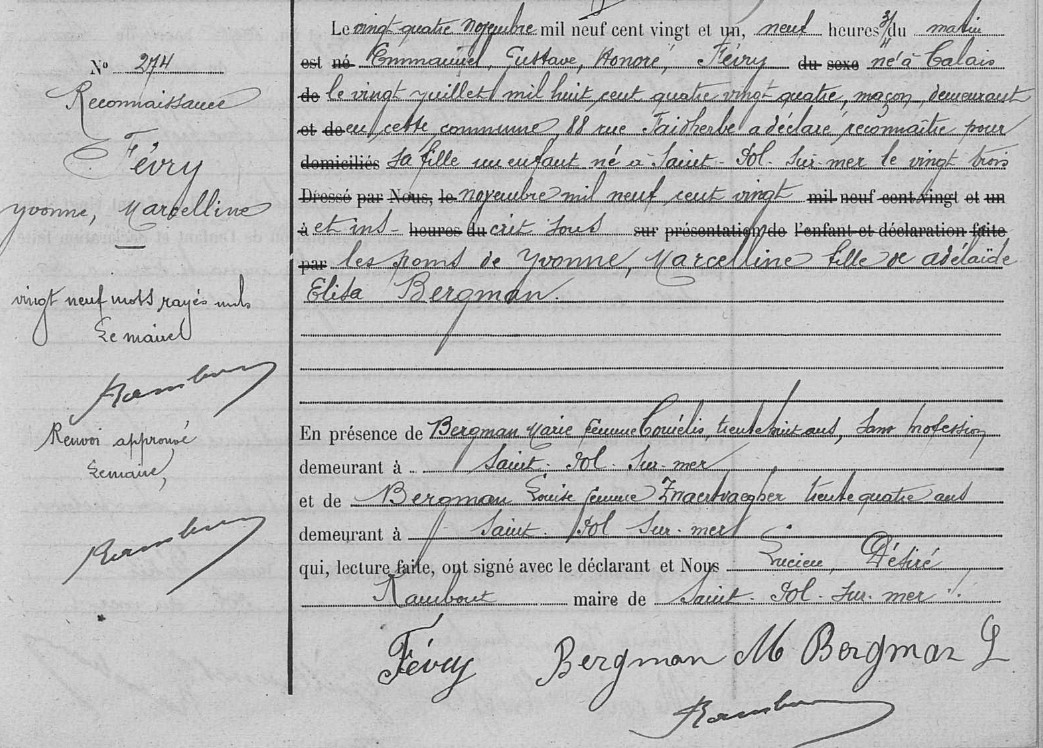 N° 274
Reconnaissance
Févry
Yvonne, Marcelline
vingt neuf mots rayés nuls
Le maire
Rambout
Renvoi approuvé
Le maire,
Rambout
Le vingt quatre novembre mil neuf cent vingt et un, neuf heures du matin
est né Emmanuel, Gustave, Honoré, Févry du sexe né à Calais
de le vingt juillet mil huit cent quatre vingt quatre, maçon, demeurant
et de en cette commune, 88 rue Faidherbe a déclaré reconnaître pour
domiciliés sa fille un enfant né à Saint-Pol-sur-mer le vingt trois
Dressé par Nous, le novembre mil neuf cent vingt mil neuf cent vingt et un
à et ins- heures du crit sous sur présentation de l'enfant et déclaration faite
par les poms de Yvonne, Marcelline fille de Adélaïde
Elisa Bergman.
En présence de Bergman Marie femme Couélis, trente huit ans, sans profession
demeurant à Saint-Pol-sur-mer
et de Bergman Louise femme trente quatre ans
demeurant à Saint-Pol sur-mer
qui, lecture faite, ont signé avec le déclarant et Nous Lucien, Désiré
Rambout maire de Saint-Pol-sur-mer ./.
Févry Bergman M Bergman L
Rambout